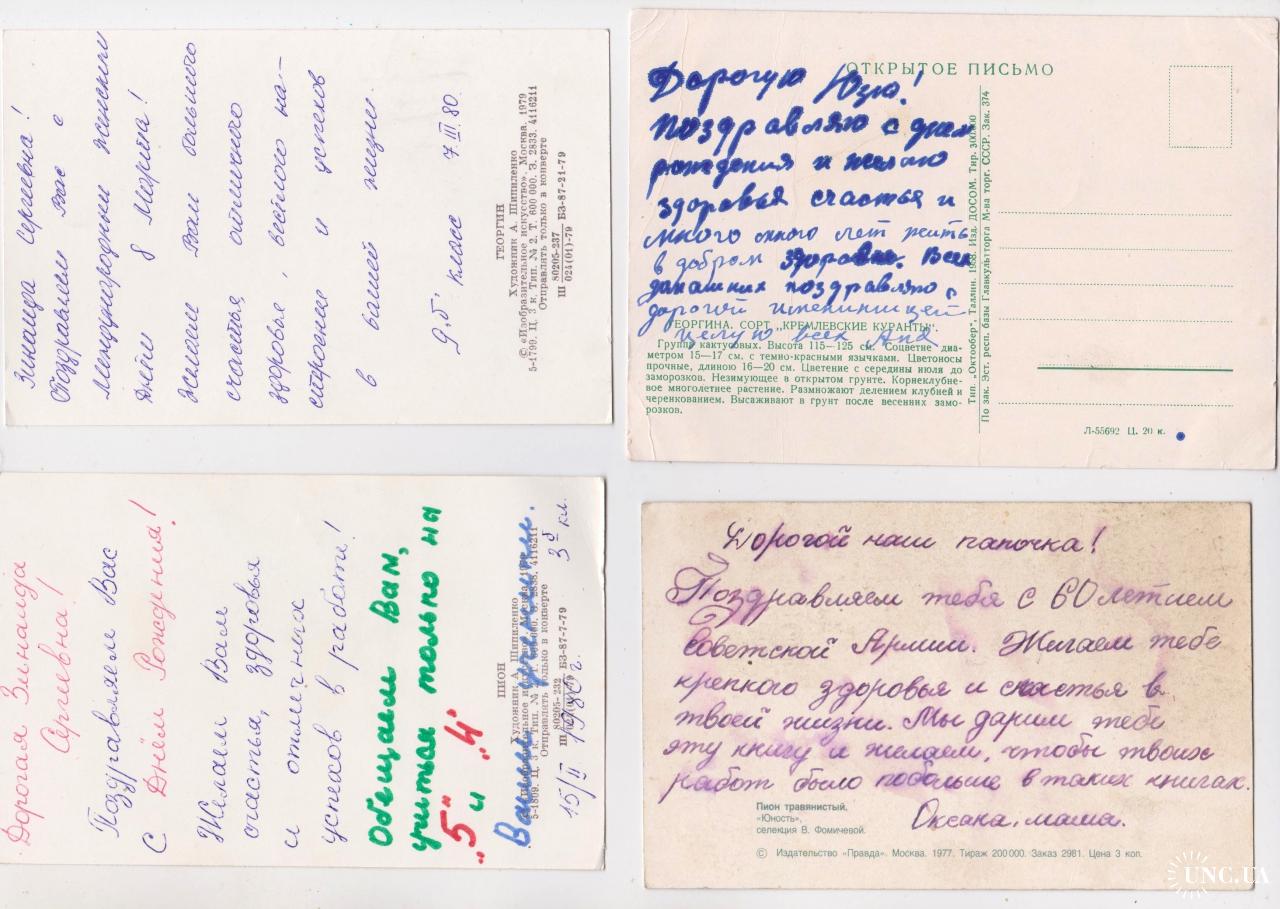 Зинаида Сергеевна!
Поздравляем Вас с
Международным женским
Днём 8 Марта!
Желаем Вам большого
счастья, отличного
здоровья, весеннего на-
строения и успехов
в вашей жизни.
2"б" класс 7 III 80.
ГЕОРГИН
Художник А. Шипиленко
© «Изобразительное искусство». Москва. 1979
5-1799. Ц. 3 к. Тип. № 2. Т. 600 000. З. 2833. 4116211
Отправлять только в конверте
Ш 80205-237 БЗ-87-21-79
024(01)-79
ОТКРЫТОЕ ПИСЬМО
Дорогую Юзю!
Поздравляю с днем
рождения и желаю
здоровья счастья и
много много лет жить
в добром здоровье. Всех
домашних поздравляю с
дорогой именинницей
целую всех
ГЕОРГИНА. СОРТ „КРЕМЛЕВСКИЕ КУРАНТЫ".
Группа кактусовых. Высота 115—125 см. Соцветие диа-
метром 15—17 см. с темно-красными язычками. Цветоносы
прочные, длиною 16—20 см. Цветение с середины июля до
заморозков. Незимующее в открытом грунте. Корнеклубне-
вое многолетнее растение. Размножают делением клубней и
черенкованием. Высаживают в грунт после весенних замо-
розков.
Тип. „Октообер", Таллин. 1958. Изд. ДОСОМ. Тир. 300.000
По зак. Эст. респ. базы Главкультторга М-ва торг. СССР. Зак. 374
Л-55692 Ц. 20 к.
Дорогая Зинаида
Сергиевна!
Поздравляем Вас
С Днём Рождения!
Желаем Вам
счастья, здоровья
и отличных
успехов в работе!
Обещаем Вам,
учиться только на
„5" и „4"
Ваши ученики.
15/II 1980 г. 3 б кл.
ПИОН
Художник А. Шипиленко
5-1809. Ц. 3 к. Тип. № 4116211
Отправлять только в конверте
Ш 80205-232 БЗ-87-7-79
Дорогой наш папочка!
Поздравляем тебя с 60 летием
Советской Армии. Желаем тебе
крепкого здоровья и счастья в
твоей жизни. Мы дарим тебе
эту книгу и желаем, чтобы твоих
работ было побольше в таких книгах.
Оксана, мама.
Пион травянистый.
«Юность»,
селекция В. Фомичевой.
© Издательство «Правда». Москва. 1977. Тираж 200 000. Заказ 2981. Цена 3 коп.
UNC.UA